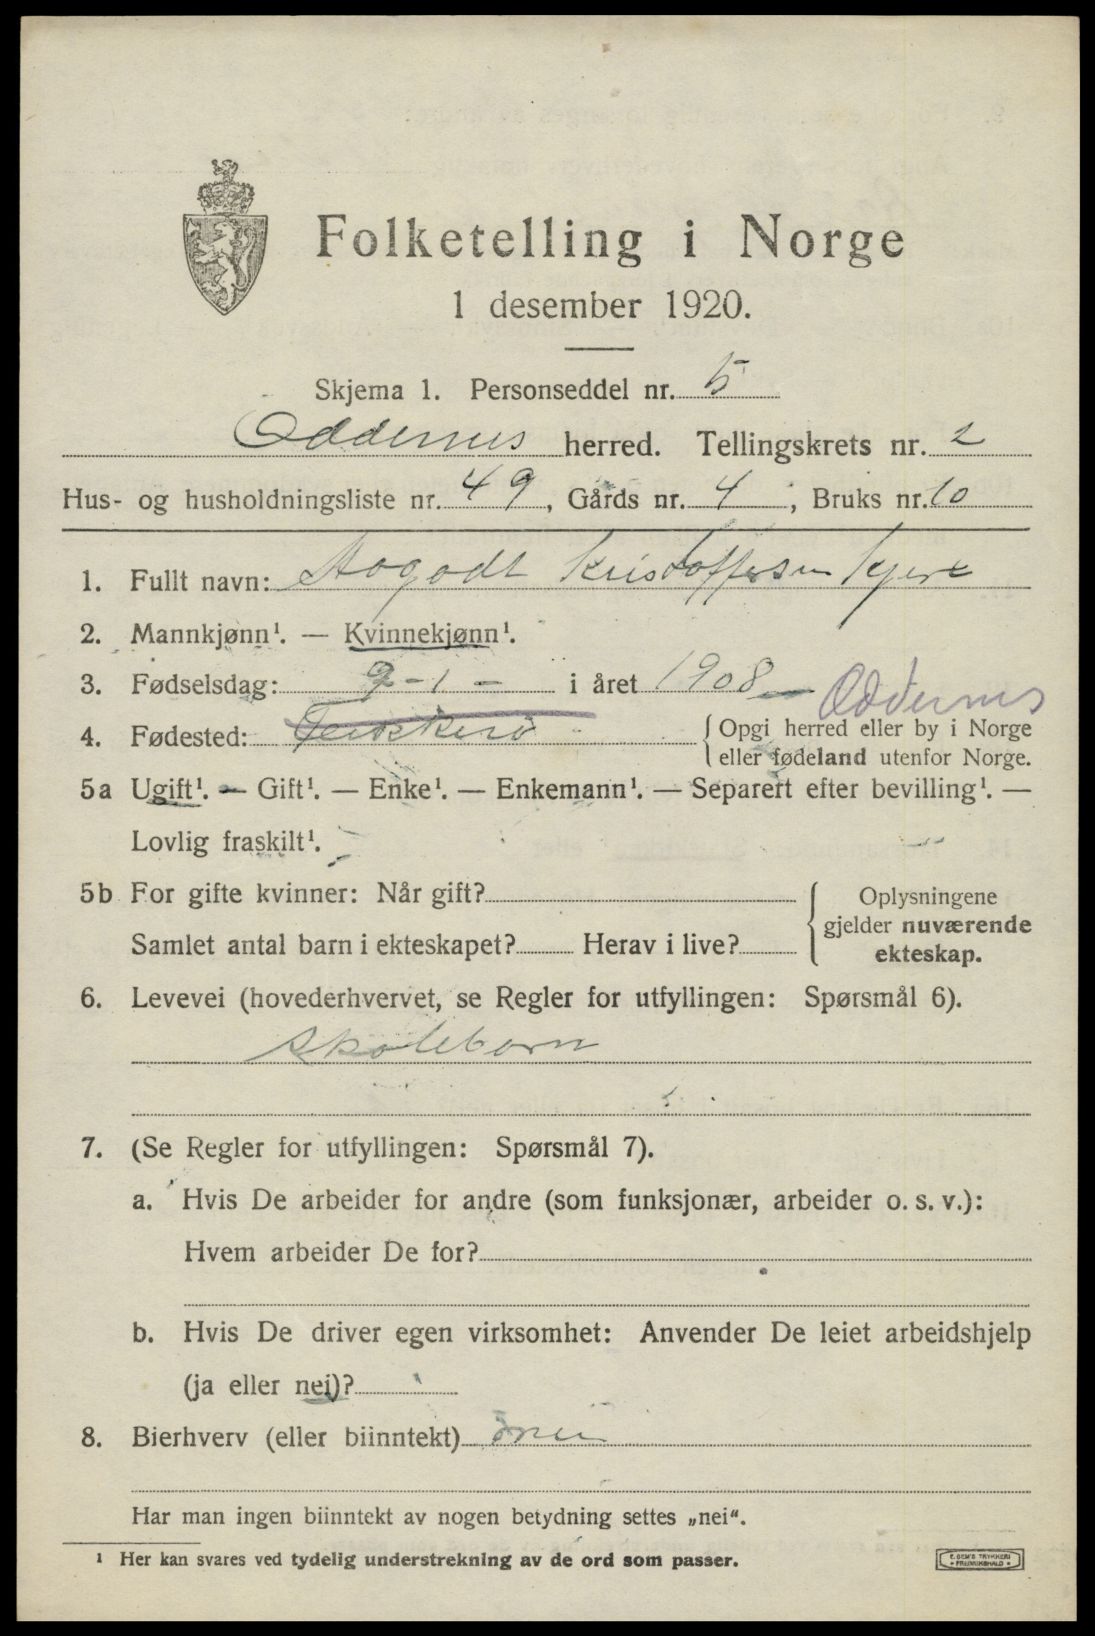 Folketelling i Norge
1 desember 1920.
Skjema 1. Personseddel nr. 5
Oddernes herred. Tellingskrets nr. 2
Hus- og husholdningsliste nr. 49, Gårds nr. 4, Bruks nr. 10
1. Fullt navn: Aagodt Kristoffersen Kjere
2. Mannkjønn¹. — Kvinnekjønn¹.
3. Fødselsdag: 9-1- i året 1908 Oddernes
4. Fødested: {Opgi herred eller by i Norge
eller fødeland utenfor Norge.
5a Ugift¹. — Gift¹. — Enke¹. — Enkemann¹. — Separert efter bevilling¹. —
Lovlig fraskilt¹.
5b For gifte kvinner: Når gift? { Oplysningene
gjelder nuværende
Samlet antal barn i ekteskapet? Herav i live? ekteskap.
6. Levevei (hovederhvervet, se Regler for utfyllingen: Spørsmål 6).
Skolebarn
7. (Se Regler for utfyllingen: Spørsmål 7).
a. Hvis De arbeider for andre (som funksjonær, arbeider o. s. v.):
Hvem arbeider De for?
b. Hvis De driver egen virksomhet: Anvender De leiet arbeidshjelp
(ja eller nei)?
8. Bierhverv (eller biinntekt) nei
Har man ingen biinntekt av nogen betydning settes „nei“.
¹ Her kan svares ved tydelig understrekning av de ord som passer.
E. SEM'S TRYKKERI
• FREDRIKSHALD •